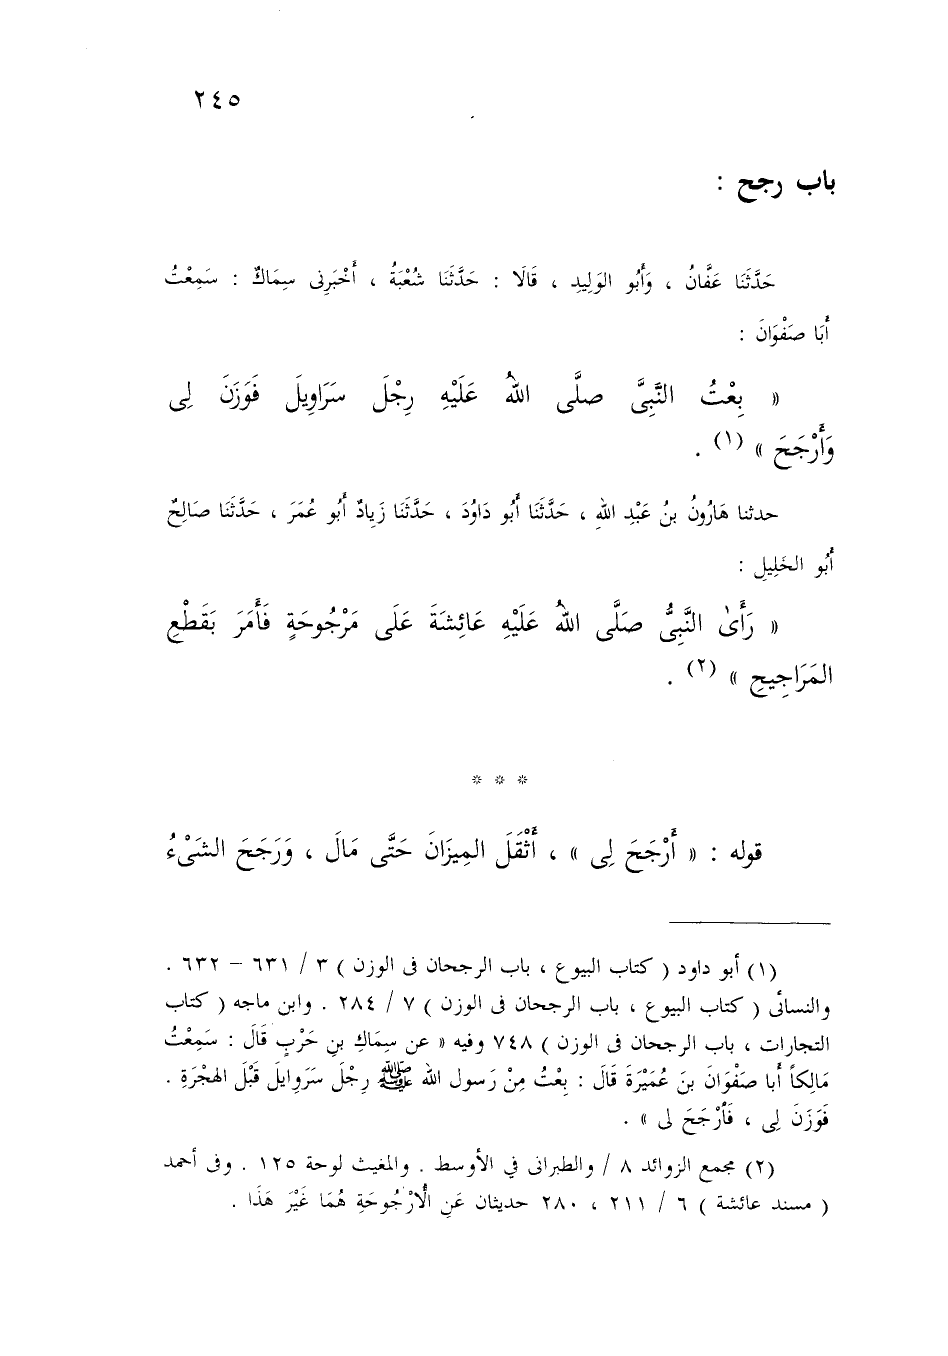 ٢٤٥
باب رجح :
حَدَّثَنَا عَفَّانُ ، وَأَبُو الوَلِيدِ ، قَالَا : حَدَّثَنَا شُعْبَةُ ، أَخْبَرَنِى سِمَاكٌ : سَمِعْتُ
أَبَا صَفْوَانَ :
« بِعْتُ النَّبِىَّ صلَّى اللهُ عَلَيْهِ رِجْلَ سَرَاوِيلَ فَوَزَنَ لِى
وَأَرْجَحَ » (١) .
حدثنا هَارُونُ بنُ عَبْدِ اللهِ ، حَدَّثَنَا أَبُو دَاوُدَ ، حَدَّثَنَا زَيادٌ أَبُو عُمَرَ ، حَدَّثَنَا صَالِحٌ
أَبُو الخَلِيلِ :
« رَأَىٰ النَّبِىُّ صَلَّى اللهُ عَلَيْهِ عَائِشَةَ عَلَى مَرْجُوحَةٍ فَأَمَرَ بَقَطْعِ
المَرَاجِيحِ » (٢) .
* * *
قوله : « أَرْجَحَ لِى » ، أَثْقَلَ المِيزَانَ حَتَّى مَالَ ، وَرَجَحَ الشَىْءُ
(١) أبو داود ( كتاب البيوع ، باب الرجحان فى الوزن ) ٣ / ٦٣١ – ٦٣٢ .
والنسائى ( كتاب البيوع ، باب الرجحان فى الوزن ) ٧ / ٢٨٤ . وابن ماجه ( كتاب
التجارات ، باب الرجحان فى الوزن ) ٧٤٨ وفيه « عن سِمَاكِ بنِ حَرْبٍ قَالَ : سَمِعْتُ
مَالِكاً أَبا صَفْوَانَ بنَ عُمَيْرَةَ قَالَ : بِعْتُ مِنْ رَسول الله ﷺ رِجْلَ سَرَوايلَ قَبْلَ الهجْرَةِ .
فَوَزَنَ لِى ، فَأَرْجَحَ لى » .
(٢) مجمع الزوائد ٨ / والطبرانى في الأوسط . والمغيث لوحة ١٢٥ . وفى أحمد
( مسند عائشة ) ٦ / ٢١١ ، ٢٨٠ حديثان عَنِ الْأُرْجُوحَةِ هُمَا غَيْرَ هَذَا .